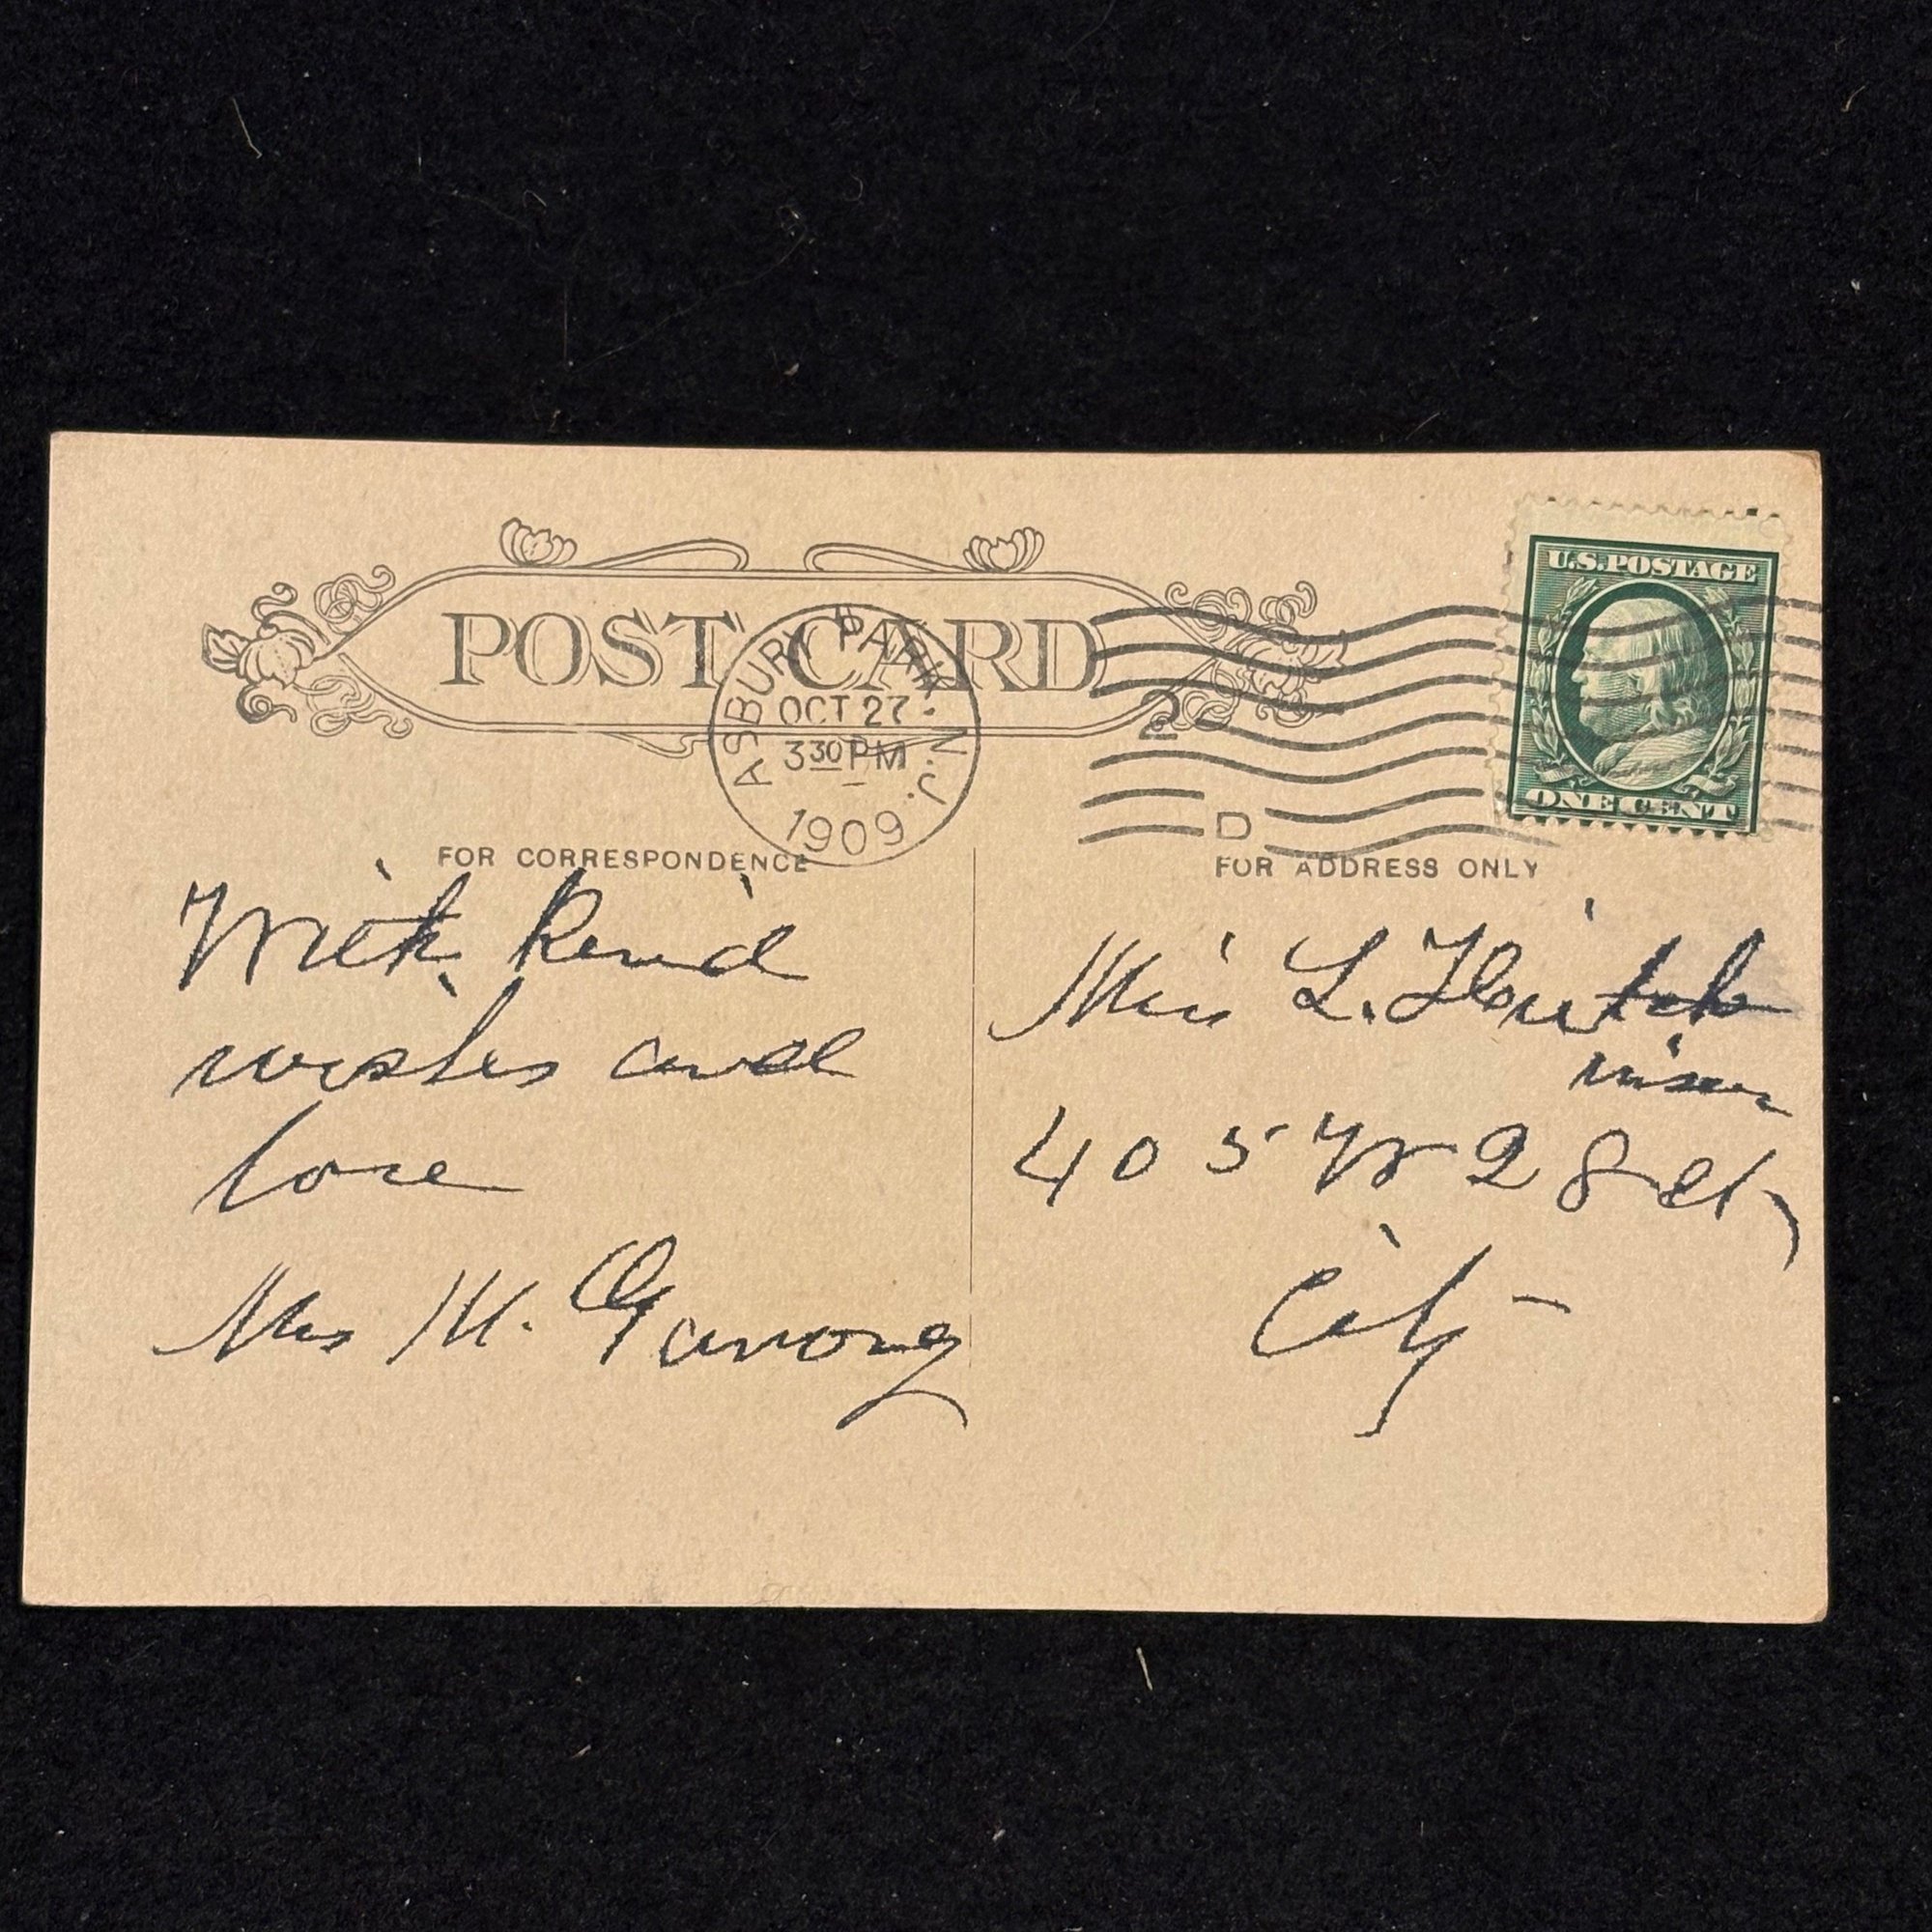 POST CARD
ASBURY PARK N.J.
OCT 27
3 30 PM
1909
2
D
U.S. POSTAGE
ONE CENT
FOR CORRESPONDENCE
FOR ADDRESS ONLY
With Kind
wishes and
love
Mrs M.
Miss L.
405 W 28 st
City